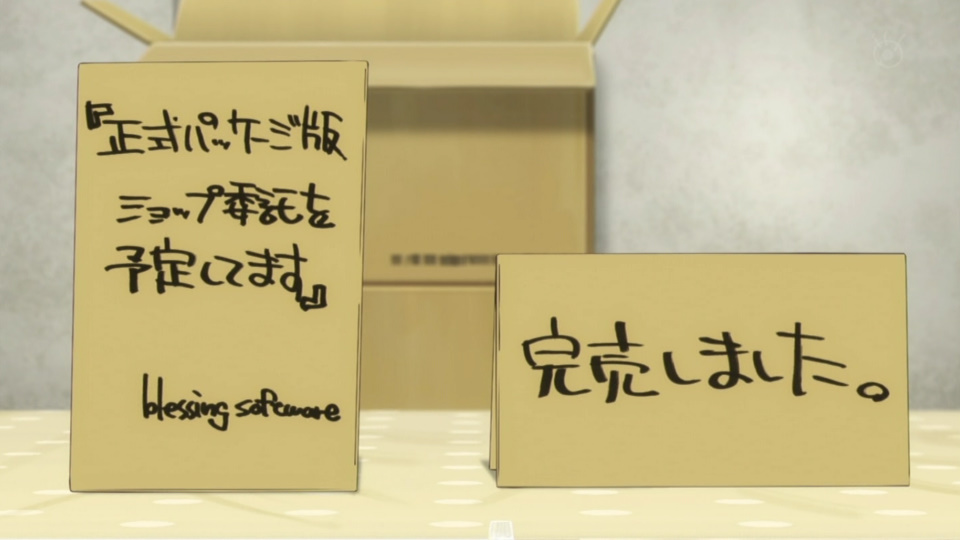 『正式パッケージ版
ショップ委託を
予定してます』
blessing software
完売しました。